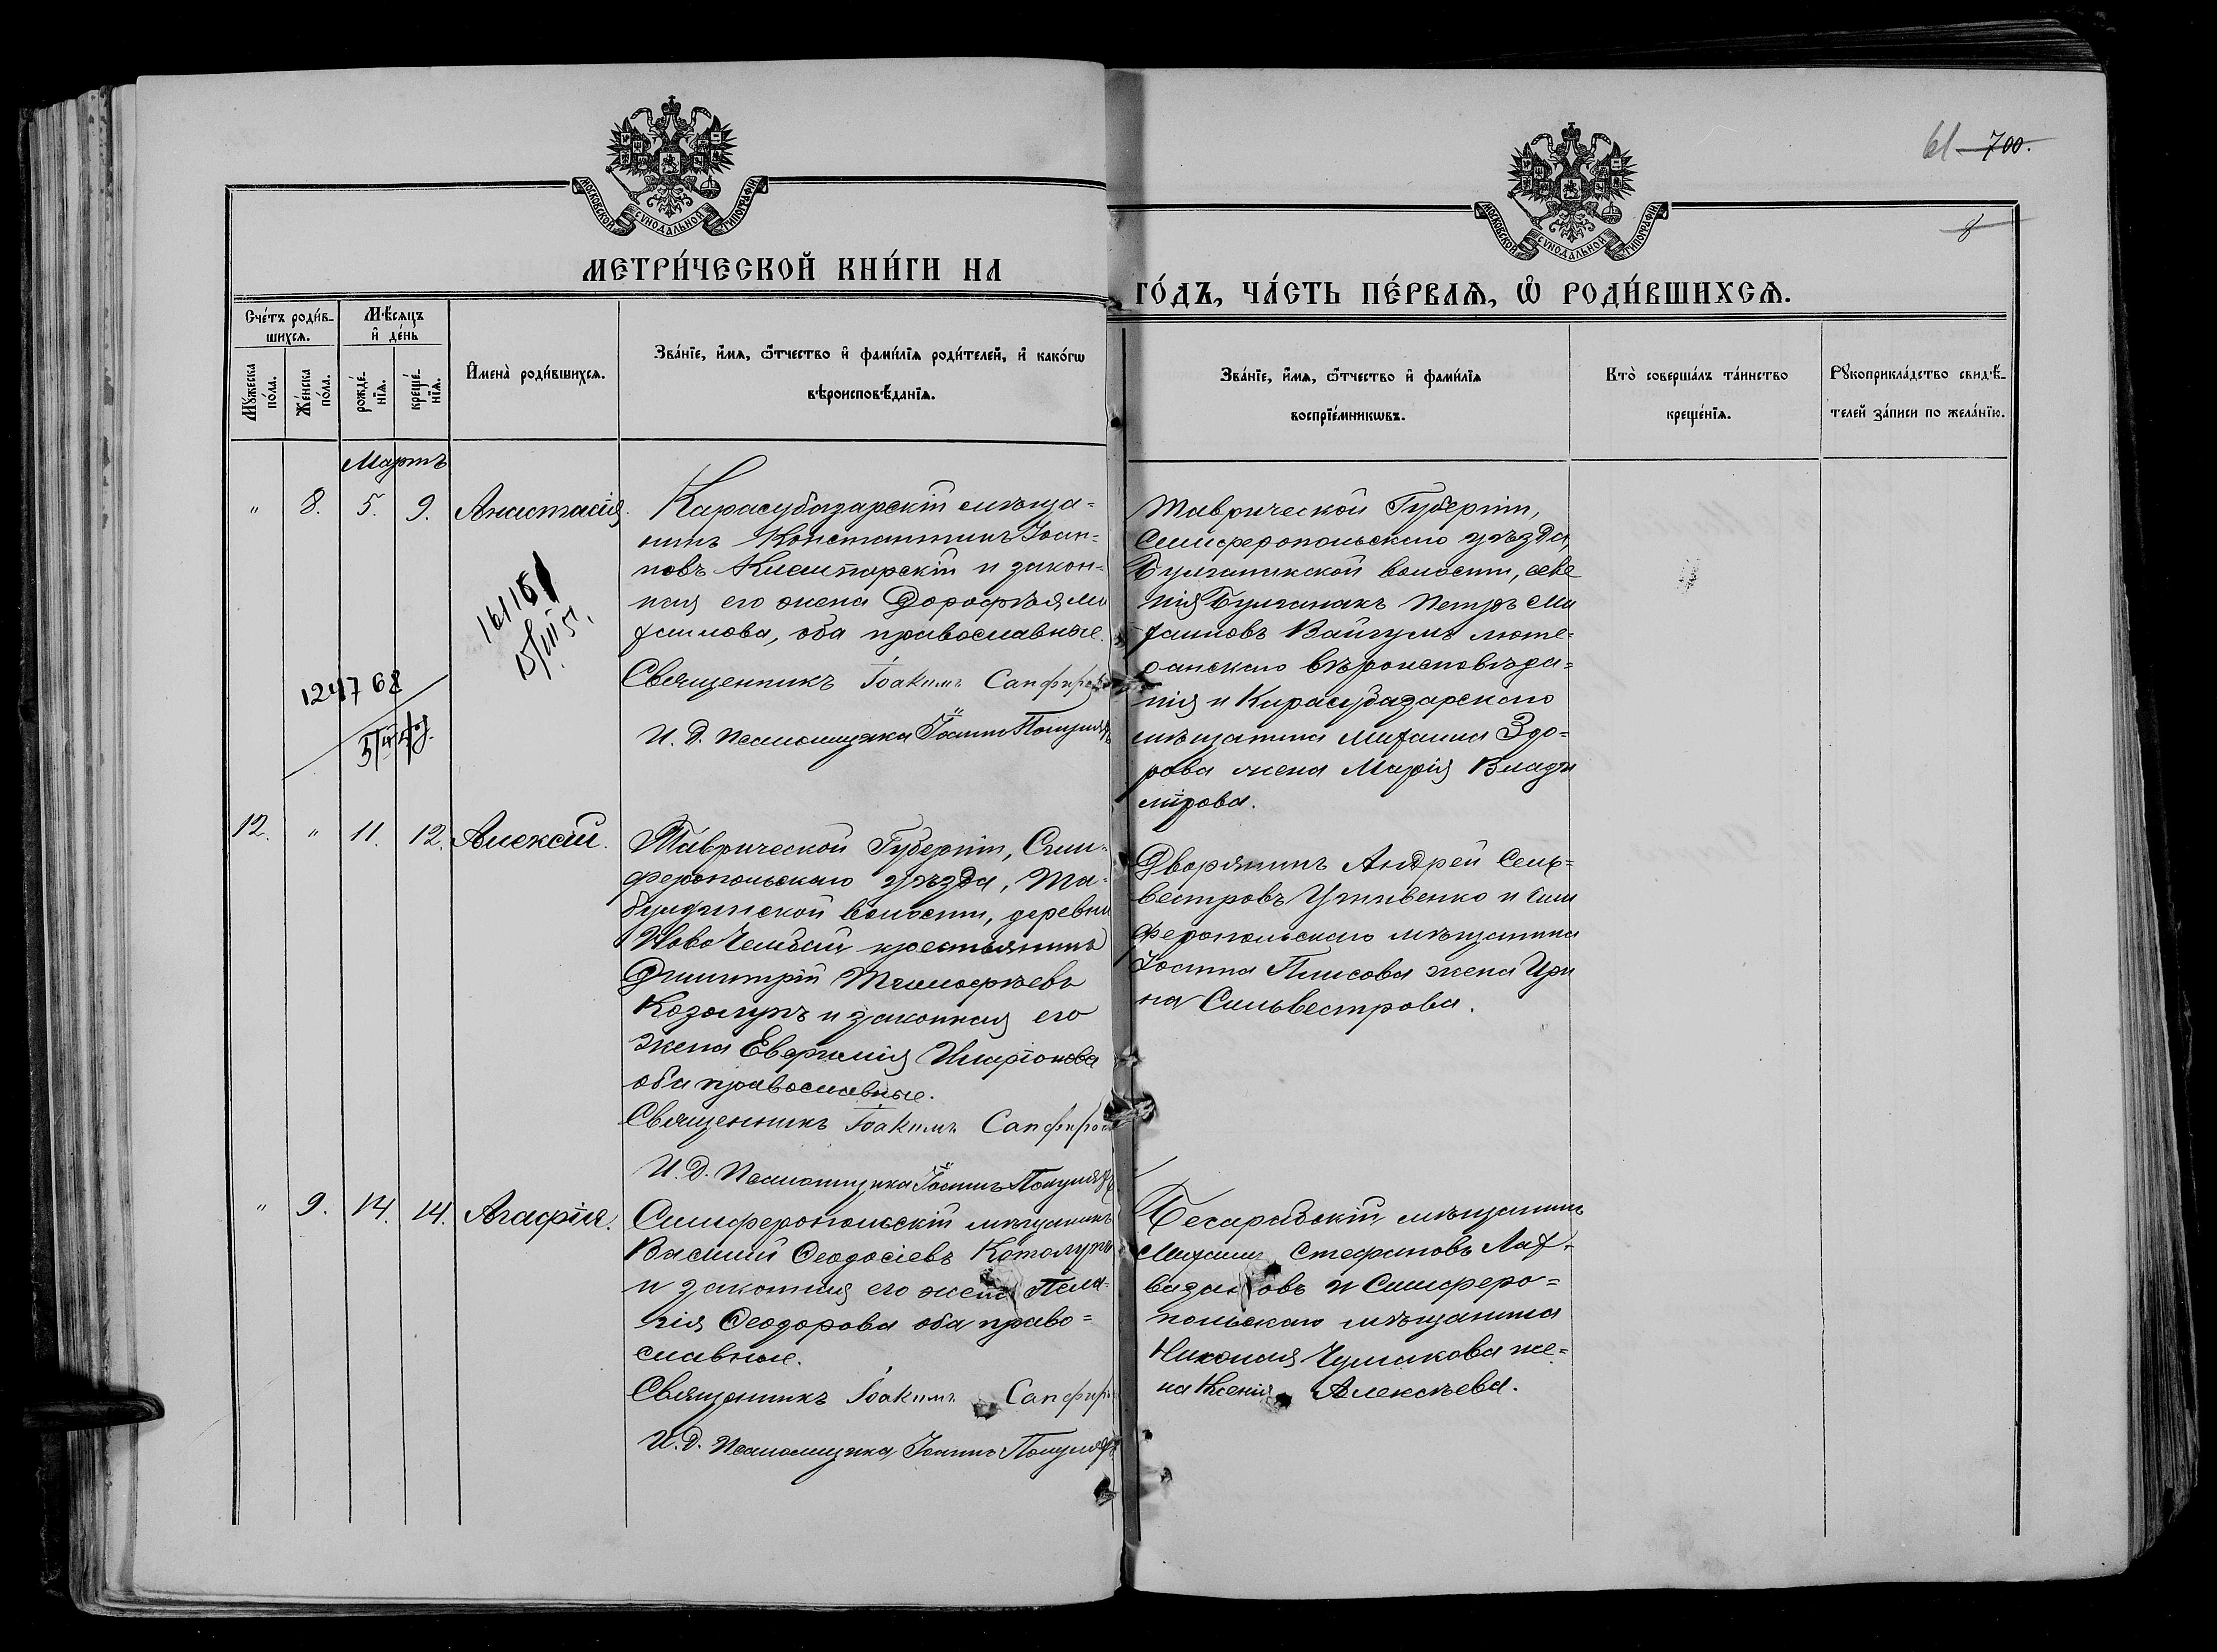 61 700.
8
МОСКОВСКОЙ СѴНОДАЛЬНОЙ ТИПОГРАФІИ
МОСКОВСКОЙ СѴНОДАЛЬНОЙ ТИПОГРАФІИ
МЕТРИ́ЧЕСКОЙ КНИ́ГИ НА
ГО́ДЪ, ЧА́СТЬ ПЕ́РВАѦ, Ѡ҆ РОДИ́ВШИХСѦ.
Сче́тъ роди́в-
шихсѧ.
Мꙋ́жеска
по́ла.
Же́нска
по́ла.
Мѣ́сѧцъ
и҆ де́нь
рожде́-
нїѧ.
креще́-
нїѧ.
И҆мена̀ роди́вшихсѧ.
Зва́нїе, и҆́мѧ, ѻ҆́тчество и҆ фами́лїѧ роди́телей, и҆ како́гѡ
вѣроисповѣ́данїѧ.
Зва́нїе, и҆́мѧ, ѻ҆́тчество и҆ фами́лїѧ
воспрїе́мникѡвъ.
Кто̀ соверша́лъ та́инство
креще́нїѧ.
Рꙋкоприкла́дство свидѣ́-
телей за́писи по жела́нїю.
Мартъ
" 8. 5. 9. Анастасія.
Карасубазарскій мѣща-
нинъ Константинъ Іоан-
новъ и закон-
ная его жена Дорофѣя Ми
хаилова, оба православные.
Священникъ Іоакимъ Сапфиров
И. Д. Псаломщика Іоаннъ
Таврической Губерніи,
Симферопольскаго уѣзда,
Булганакской волости, селе
нія Булганакъ Петръ Ми
хаиловъ Вайгумъ люте-
ранскаго вѣроисповѣда-
нія и Карасубазарскаго
мѣщанина Михаила Здо-
рова жена Марія Влади
мірова.
124768
12. " 11. 12. Алексій.
Таврической Губерніи, Сим-
феропольскаго уѣзда, Та-
булдинской волости, деревни
Ново Чембай крестьянинъ
Димитрій Тимофѣевъ
Козолупъ и законная его
жена Евфимія Иларіонова
оба православные.
Священникъ Іоакимъ Сапфиров
И. Д. Псаломщика Іоаннъ
Дворянинъ Андрей Силь-
вестровъ и Сим
феропольскаго мѣщанина
Іоанна Плисова жена Ири
на Сильвестрова.
" 9. 14. 14. Агафія.
Симферопольскій мѣщанинъ
Василій Ѳеодосіевъ
и законная его жена Пела-
гія Ѳеодорова оба право-
славные.
Священникъ Іоакимъ Сапфир
И. Д. Псаломщика Іоаннъ
Бесарабскій мѣщанинъ
Михаилъ Стефановъ
и Симферо-
польскаго мѣщанина
Николая Чумакова же-
на Ксенія Алексѣева.